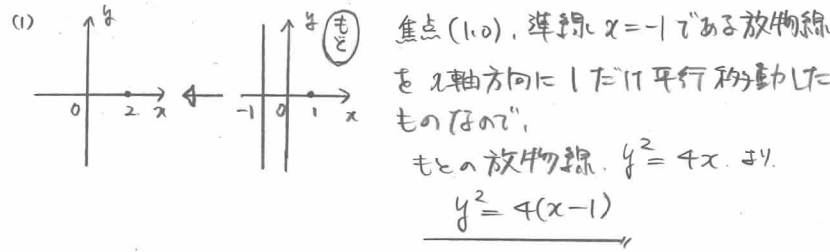 (1)
y
0 2 x
y
もと
-1 0 1 x
焦点(1,0), 準線 x=-1である放物線
を x軸方向に 1だけ平行移動した
ものなので,
もとの放物線. y²=4x. より.
y²=4(x-1)